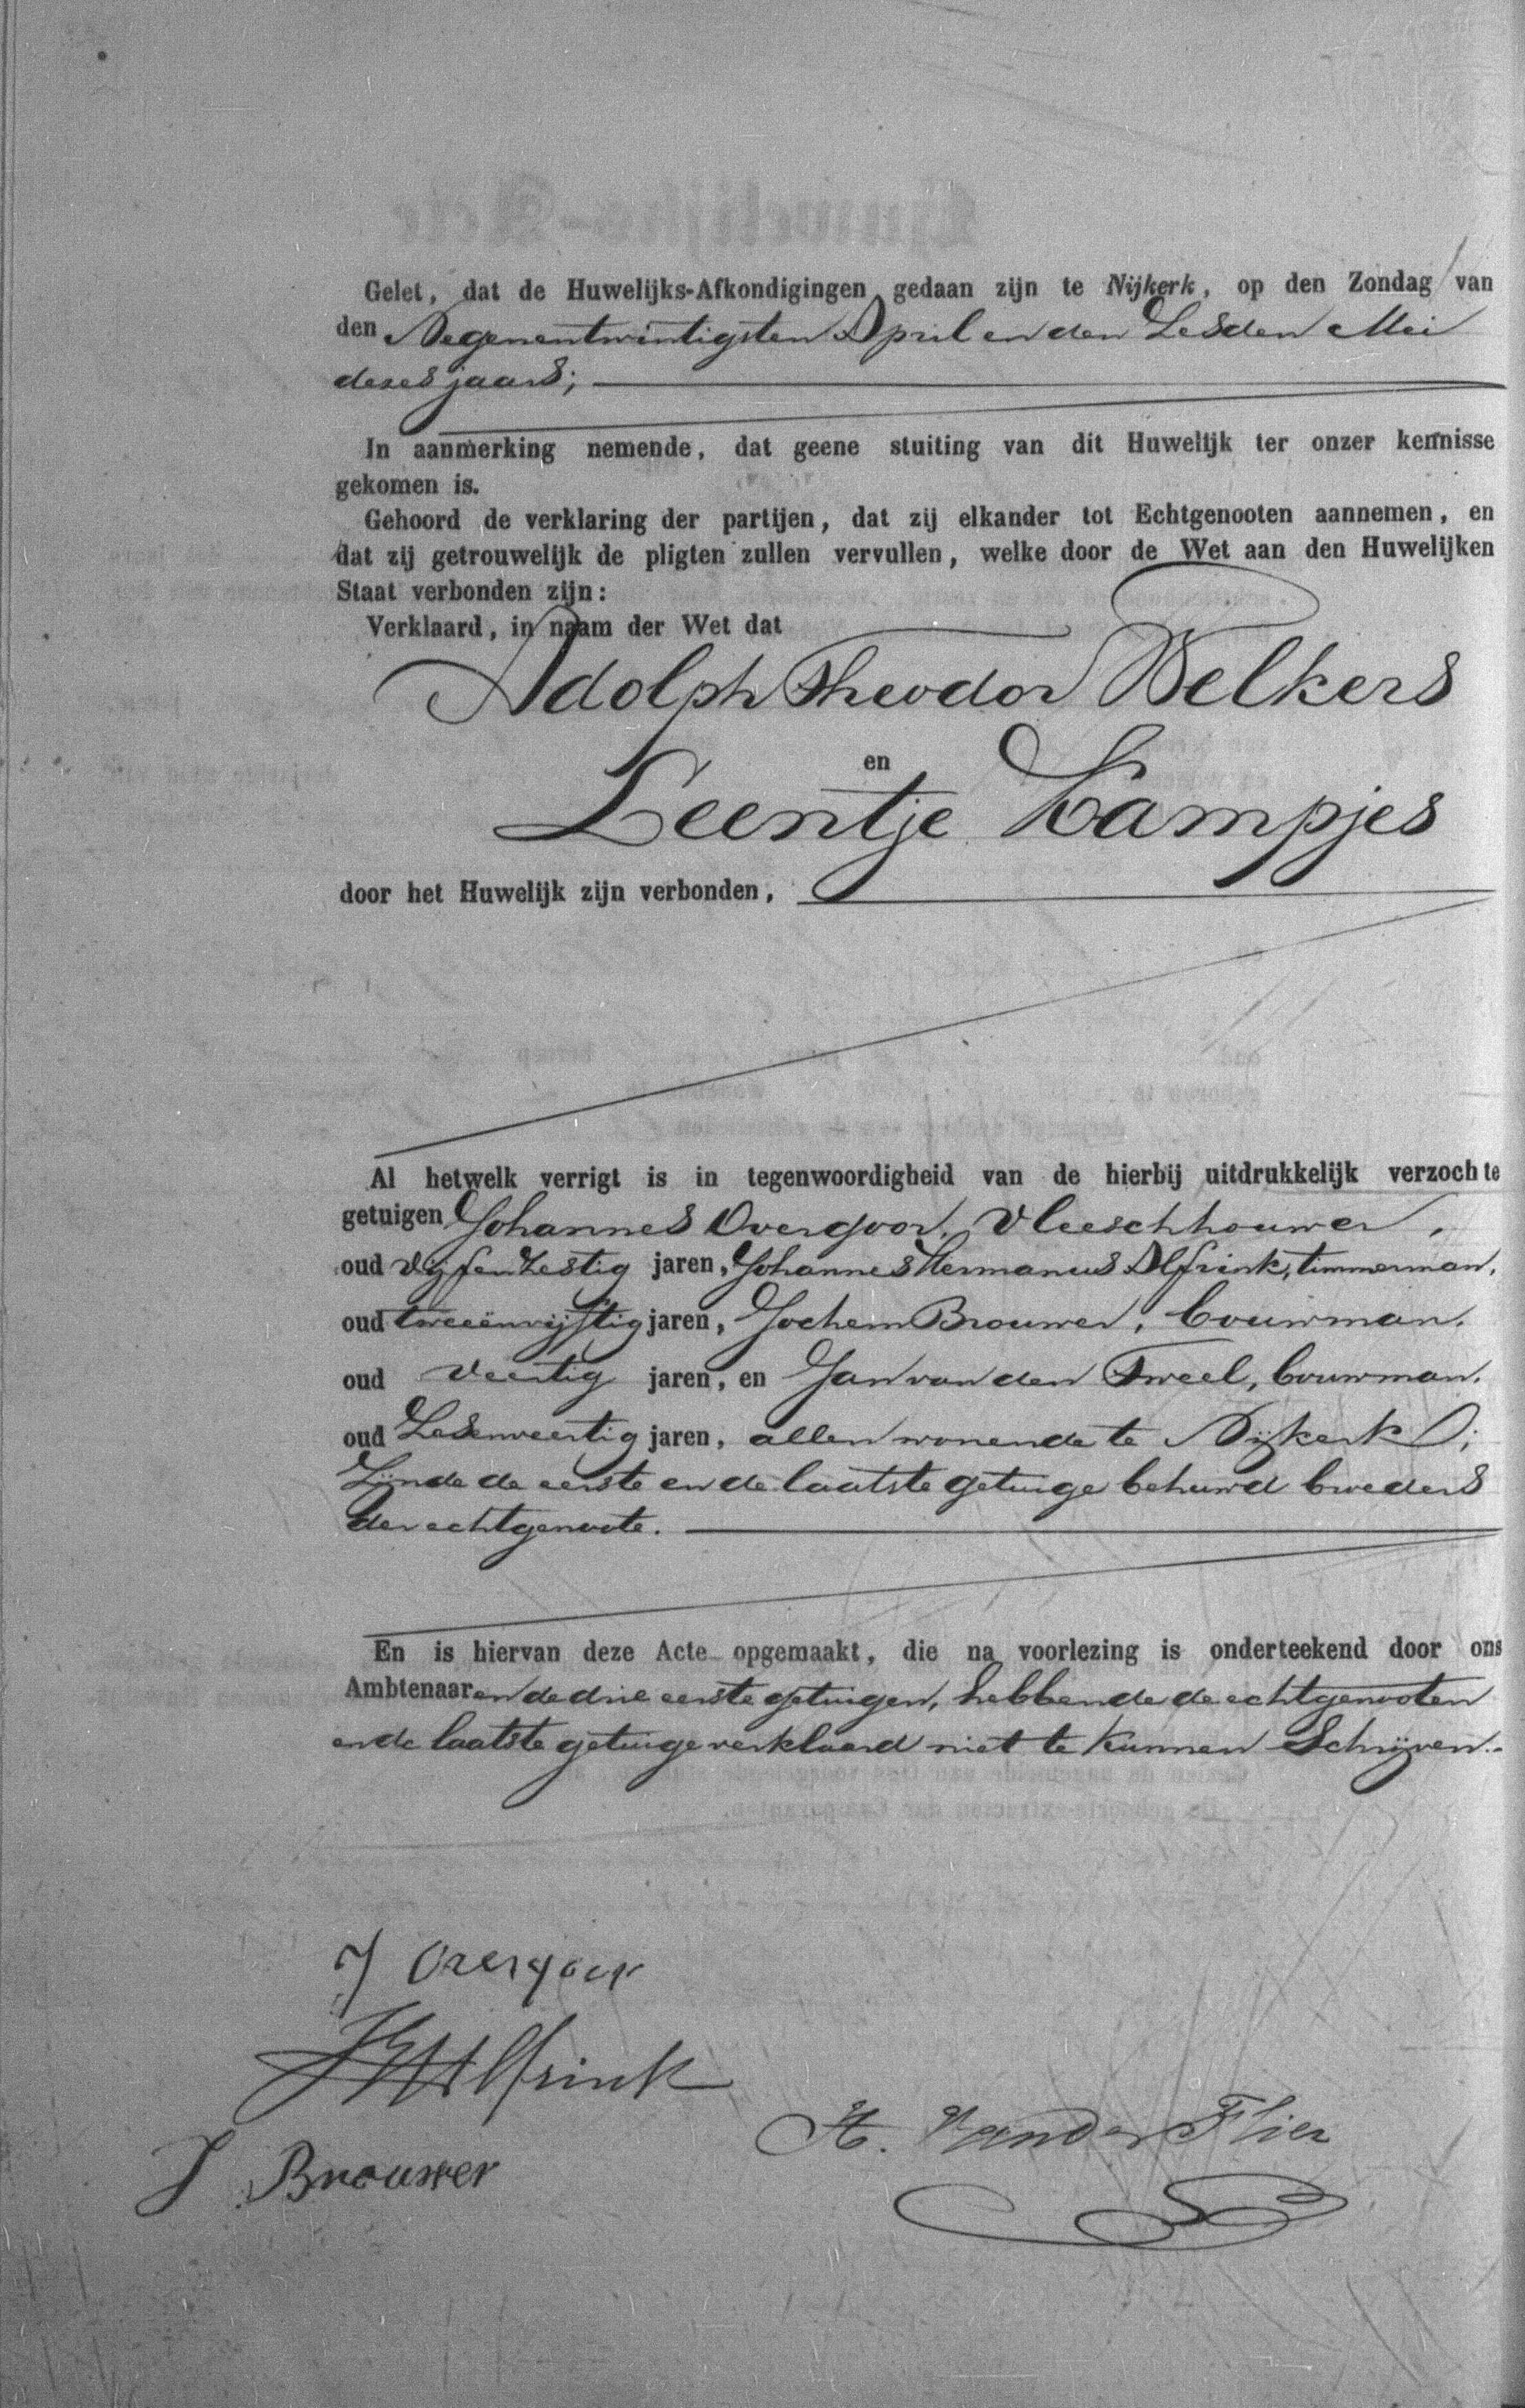 Gelet, dat de Huwelijks-Afkondigingen gedaan zijn te Nijkerk, op den Zondag van
den Negenentwintigsten April en den Zesden Mei
dezes jaars;
In aanmerking nemende, dat geene stuiting van dit Huwelijk ter onzer kennisse
gekomen is.
Gehoord de verklaring der partijen, dat zij elkander tot Echtgenooten aannemen, en
dat zij getrouwelijk de pligten zullen vervullen, welke door de Wet aan den Huwelijken
Staat verbonden zijn:
Verklaard, in naam der Wet dat
Adolph Theodor Welkers
en
Leentje Kampjes
door het Huwelijk zijn verbonden,
Al hetwelk verrigt is in tegenwoordigheid van de hierbij uitdrukkelijk verzochte
getuigen Johannes Overgoor, Vleeschhouwer,
oud vijfenzestig jaren, Johannes Hermanus Alfrink, timmerman,
oud tweeënvijftig jaren, Jochem Brouwer, bouwman,
oud veertig jaren, en Jan van den Tweel, bouwman,
oud Zesenveertig jaren, allen wonende te Nijkerk;
Zijnde de eerste en de laatste getuige behuwd broeders
der echtgenoote.
En is hiervan deze Acte opgemaakt, die na voorlezing is onderteekend door ons
Ambtenaar en de drie eerste getuigen, hebbende de echtgenooten
en de laatste getuige verklaard niet te kunnen Schrijven.
J Overgoor
JHAlfrink
H. van der Flier
J Brouwer